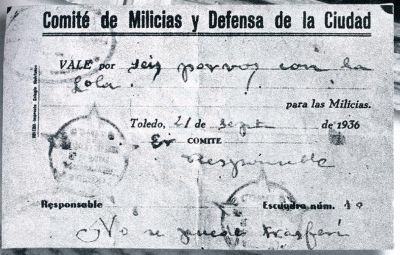 Comité de Milicias y Defensa de la Ciudad
VALE por seis porvos con la
Lola.
para las Milicias.
Toledo, 21 de Sept de 1936
Er COMITE
Responsable
Responsable Escuadra núm. 10
No se puede trasferi